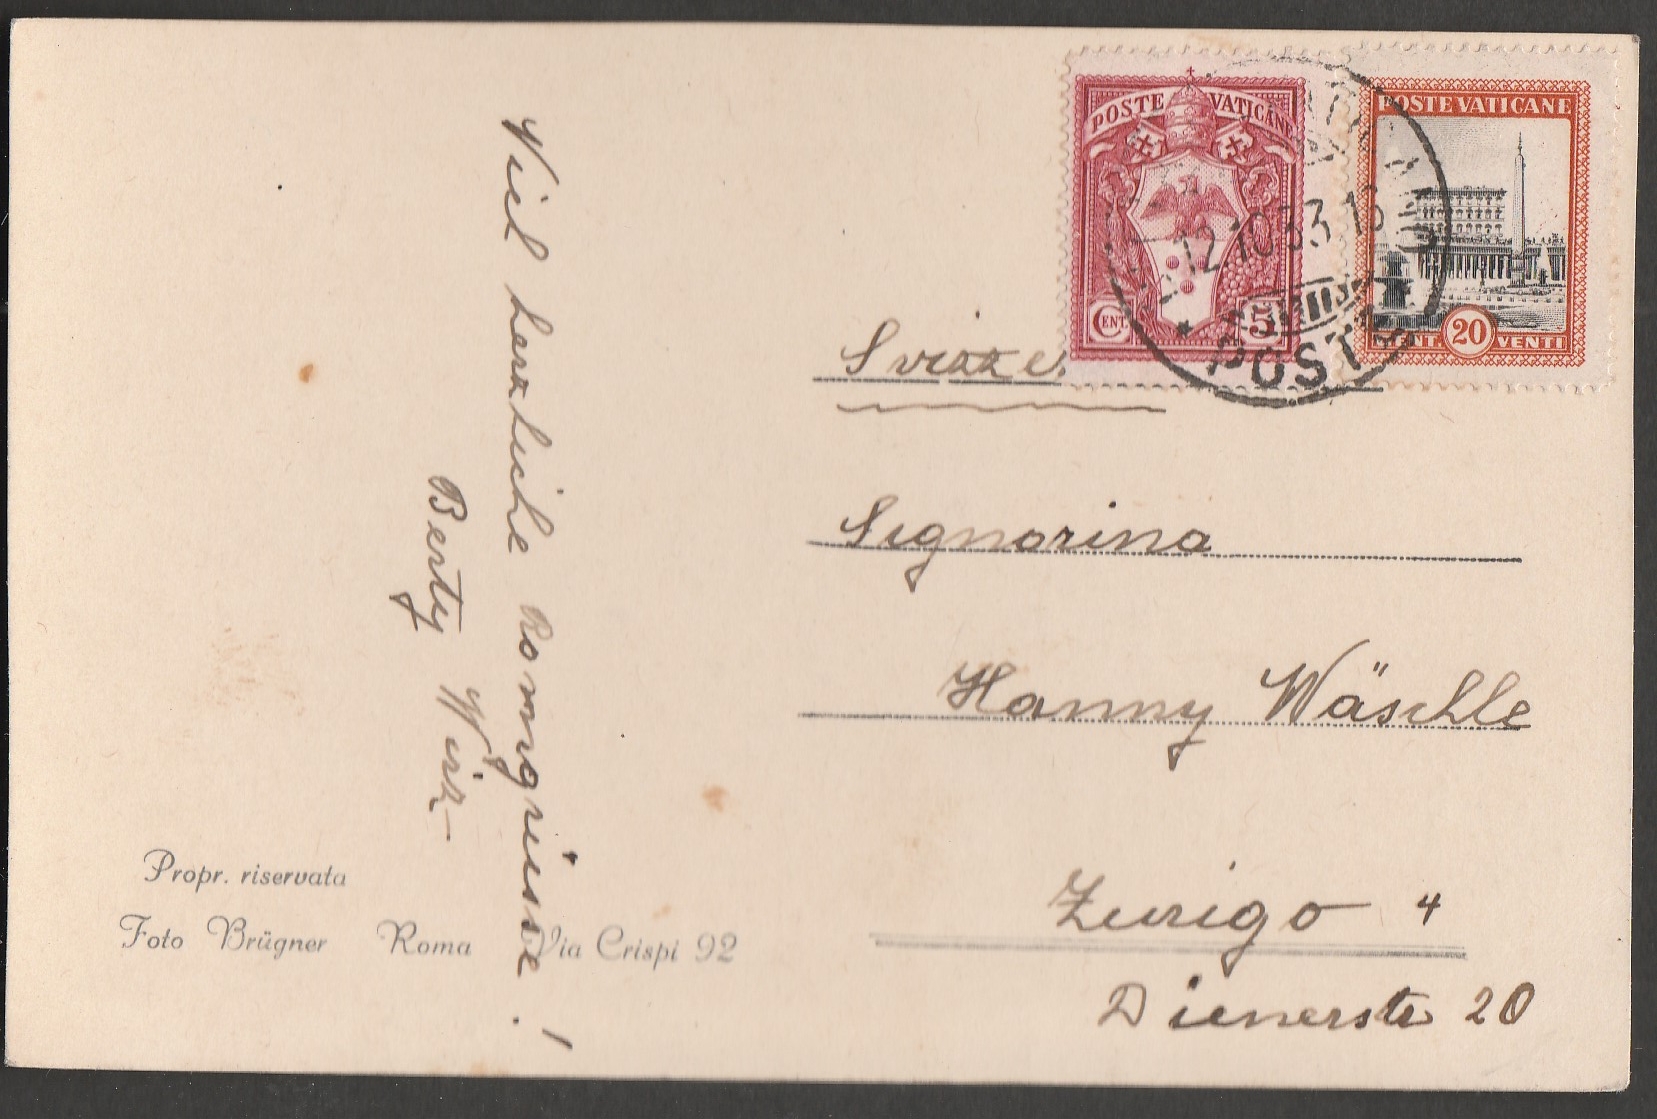 Viel herzliche Romgrüsse!
Berty Wirk
Propr. riservata
Foto Brügner Roma Via Crispi 92
POSTE VATICANE
CENT. 5
POSTE VATICANE
CENT. 20 VENTI
12.10.33.16
POSTE
Svizze
Signorina
Hanny Wäschle
Zurigo 4
Dienerstr 20